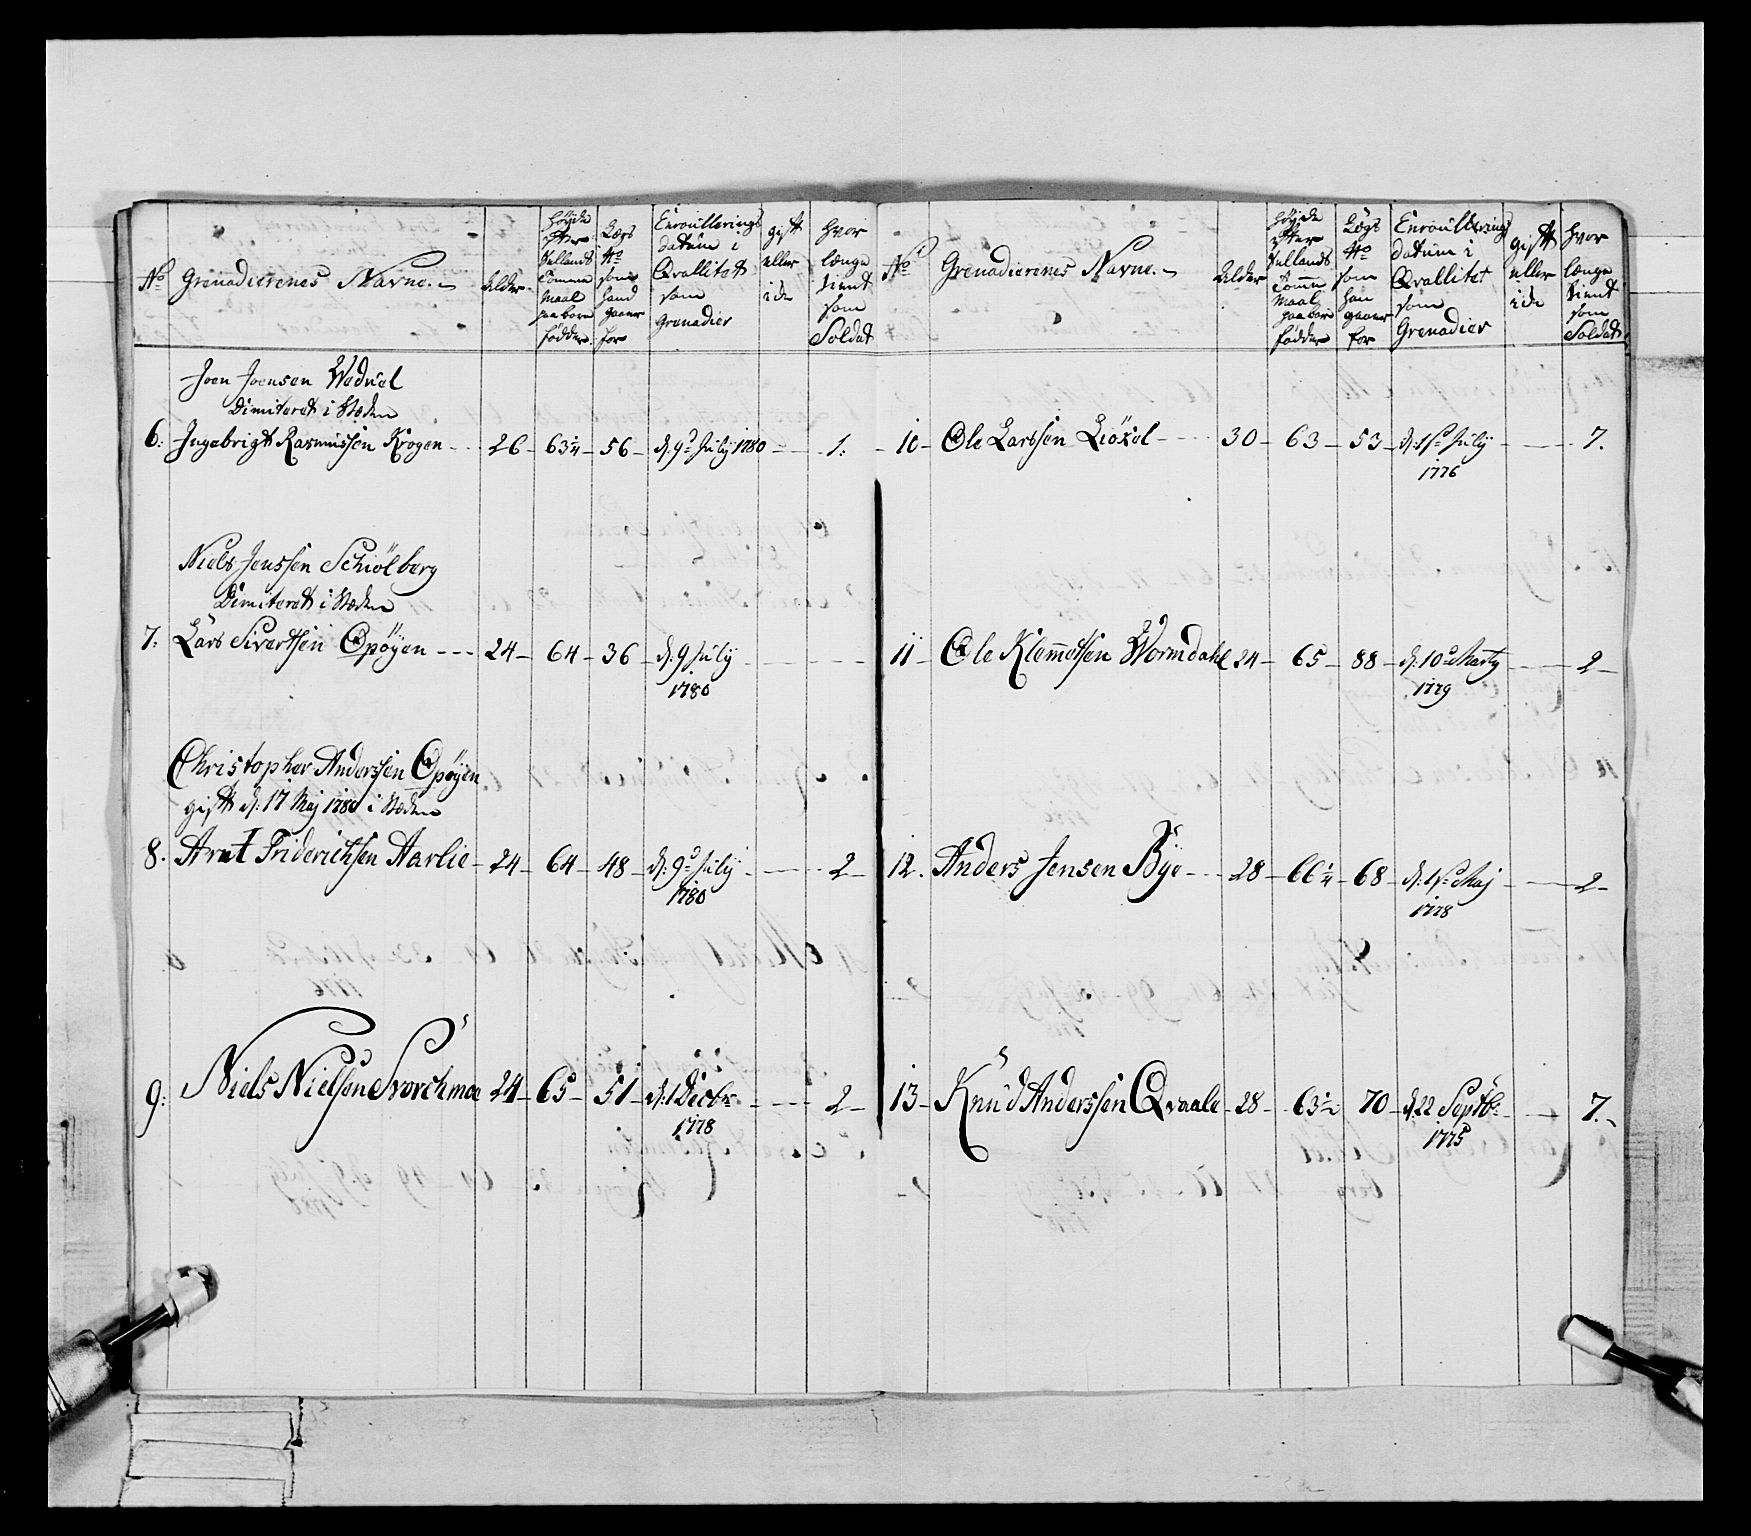 No
Grenadierenes Navne.
Alder
Høyde efter Sællands Tomme Maal paa bare Fødder
Lægs No som hand gaaer for
Enroullerings datum i Qvallitet som Grenadier
gift eller ide
Hvor længe tient som Soldat
Joen Joensen Weduel
Dimiteret i Stæden
6: Ingebrigt Rasmussen Krogen - 26 - 63¼ - 56 - d: 9d July 1780 - 1:
Niels Jenssen Schiölberg
Dimiteret i Stæden
7: Lars Sivertsen Opøyen - 24 - 64 - 36 - d: 9 July
1780
Christopher Anderssen Opøyen
gift d: 17 Maj 1780 i Stæden
8. Arnt Friderichsen Aarlie - 24 - 64 - 48 - d: 9d July - 2
1780
9: Niels Nielsen Svorchmoe 24 - 65 - 51 - d: 1 Decbr - 2
1778
No
Grenadierenes Navne.
Alder
Høyde efter Sællands Tomme Maal paa bare Fødder
Lægs No som han gaaer for
Enroullerings datum i Qvallitet som Grenadier
gift eller ide
Hvor længe tient som Soldat
10 - Ole Larssen - 30 - 63 - 53 - d: 1ste July - 7.
1776
11 - Ole Klemmetsen Wormdahl 24 - 65 - 88 - d: 10d Marty - 2
1779
12. Anders Jensen Bye - 28 - 66¼ - 68 - d: 1ste Maj - 2
1778
13 - Knud Anderssen Qvaale - 28 - 63½ - 70 - d 22 Septbr - 7.
1775